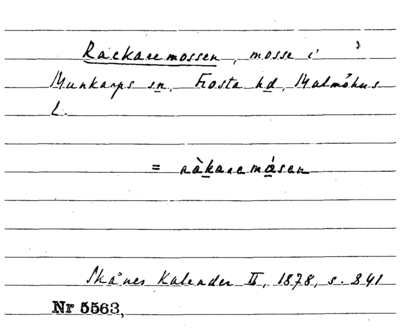 Rackaremossen, mosse i
Munkarps sn, Frosta hd, Malmöhus
L.
= ràkaremåsen
Skånes Kalender II, 1878, s. 241
Nr 5563,